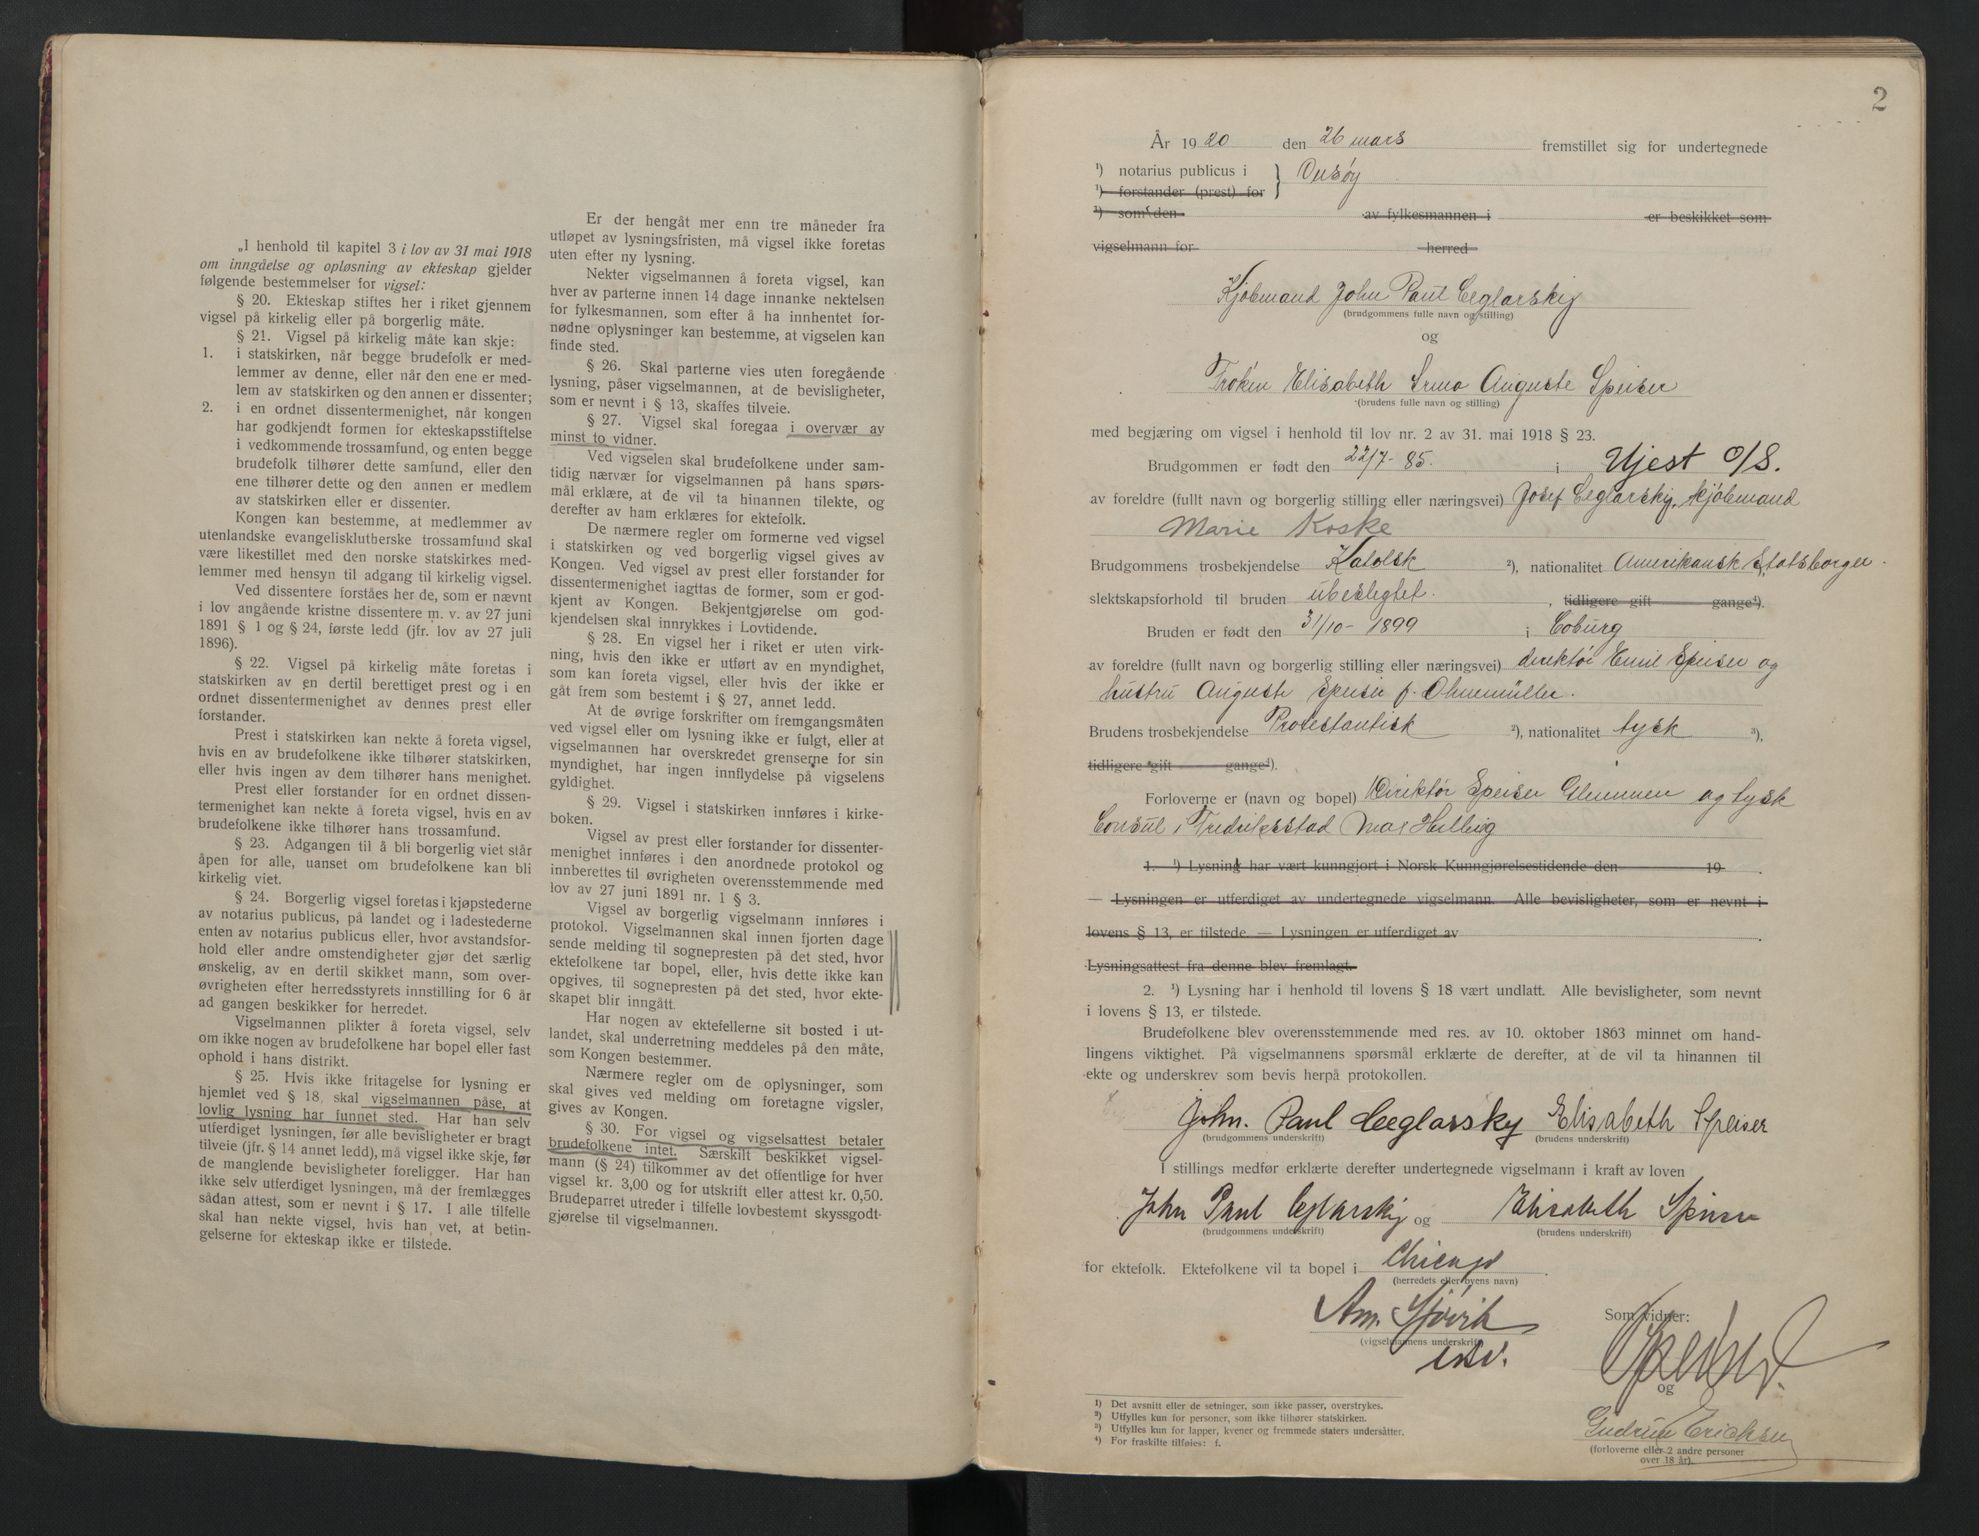 „I henhold til kapitel 3 i lov av 31 mai 1918
om inngåelse og opløsning av ekteskap gjelder
følgende bestemmelser for vigsel:
§ 20. Ekteskap stiftes her i riket gjennem
vigsel på kirkelig eller på borgerlig måte.
§ 21. Vigsel på kirkelig måte kan skje:
1. i statskirken, når begge brudefolk er med-
lemmer av denne, eller når den ene er med-
lem av statskirken og den annen er dissenter;
2. i en ordnet dissentermenighet, når kongen
har godkjendt formen for ekteskapsstiftelse
i vedkommende trossamfund, og enten begge
brudefolk tilhører dette samfund, eller den
ene tilhører dette og den annen er medlem
av statskirken eller er dissenter.
Kongen kan bestemme, at medlemmer av
utenlandske evangeliskluthers trossamfund skal
være likestillet med den norske statskirkes med-
lemmer med hensyn til adgang til kirkelig vigsel.
Ved dissentere forståes her de, som er nævnt
i lov angående kristne dissentere m. v. av 27 juni
1891 § 1 og § 24, første ledd (jfr. lov av 27 juli
1896).
§ 22. Vigsel på kirkelig måte foretas i
statskirken av en dertil berettiget prest og i en
ordnet dissentermenighet av dennes prest eller
forstander.
Prest i statskirken kan nekte å foreta vigsel,
hvis en av brudefolkene ikke tilhører statskirken,
eller hvis ingen av dem tilhører hans menighet.
Prest eller forstander for en ordnet dissen-
termenighet kan nekte å foreta vigsel, hvis en av
brudefolkene ikke tilhører hans trossamfund.
§ 23. Adgangen til å bli borgerlig viet står
åpen for alle, uanset om brudefolkene kan bli
kirkelig viet.
§ 24. Borgerlig vigsel foretas i kjøpstederne
av notarius publicus, på landet og i ladestederne
enten av notarius publicus eller, hvor avstandsfor-
hold eller andre omstendigheter gjør det særlig
ønskelig, av en dertil skikket mann, som over-
øvrigheten efter herredsstyrets innstilling for 6 år
ad gangen beskikker for herredet.
Vigselmannen plikter å foreta vigsel, selv
om ikke nogen av brudefolkene har bopel eller fast
ophold i hans distrikt.
§ 25. Hvis ikke fritagelse for lysning er
hjemlet ved § 18, skal vigselmannen påse, at
lovlig lysning har funnet sted. Har han selv
utferdiget lysningen, før alle bevisligheter er bragt
tilveie (jfr. § 14 annet ledd), må vigsel ikke skje, før
de manglende bevisligheter foreligger. Har han
ikke selv utferdiget lysningen, må der fremlægges
sådan attest, som er nevnt i § 17. I alle tilfelle
skal han nekte vigsel, hvis han vet, at betin-
gelserne for ekteskap ikke er tilstede.
Er der hengåt mer enn tre måneder fra
utløpet av lysningsfristen, må vigsel ikke foretas
uten efter ny lysning.
Nekter vigselmannen å foreta vigsel, kan
hver av parterne innen 14 dage innanke nektelsen
for fylkesmannen, som efter å ha innhentet for-
nødne oplysninger kan bestemme, at vigselen kan
finde sted.
§ 26. Skal parterne vies uten foregående
lysning, påser vigselmannen, at de bevisligheter,
som er nevnt i § 13, skaffes tilveie.
§ 27. Vigsel skal foregaa i overvær av
minst to vidner.
Ved vigselen skal brudefolkene under sam-
tidig nærvær for vigselmannen på hans spørs-
mål erklære, at de vil ta hinannen tilekte, og
derefter av ham erklæres for ektefolk.
De nærmere regler om formerne ved vigsel
i statskirken og ved borgerlig vigsel gives av
Kongen. Ved vigsel av prest eller forstander for
dissentermenighet iagttas de former, som er god-
kjent av Kongen. Bekjentgjørelse om god-
kjendelsen skal innrykkes i Lovtidende.
§ 28. En vigsel her i riket er uten virk-
ning, hvis den ikke er utført av en myndighet,
som kan foreta vigsel, eller hvis der ikke er
gåt frem som bestemt i § 27, annet ledd.
At de øvrige forskrifter om fremgangsmåten
ved vigsel eller om lysning ikke er fulgt, eller at
vigselmannen har overskredet grenserne for sin
myndighet, har ingen innflydelse på vigselens
gyldighet.
§ 29. Vigsel i statskirken innføres i kirke-
boken.
Vigsel av prest eller forstander for dissenter-
menighet innføres i den anordnede protokol og
innberettes til øvrigheten overensstemmende med
lov av 27 juni 1891 nr. 1 § 3.
Vigsel av borgerlig vigselmann innføres i
protokol. Vigselmannen skal innen fjorten dage
sende melding til sognepresten på det sted, hvor
ektefolkene tar bopel, eller, hvis dette ikke kan
opgives, til sognepresten på det sted, hvor ekte-
skapet blir inngått.
Har nogen av ektefellerne sit bosted i ut-
landet, skal underretning meddeles på den måte,
som Kongen bestemmer.
Nærmere regler om de oplysninger, som
skal gives ved melding om foretagne vigsler,
gives av Kongen.
§ 30. For vigsel og vigselsattest betaler
brudefolkene intet. Særskilt beskikket vigsel-
mann (§ 24) tilkommer av det offentlige for hver
vigsel kr. 3,00 og for utskrift eller attest kr. 0,50.
Brudeparret utreder i tilfelle lovbestemt skyssgodt-
gjørelse til vigselmannen.
2
År 1920 den 26 mars fremstillet sig for undertegnede
¹) notarius publicus i } Onsøy
¹) forstander (prest) for
¹) som den av fylkesmannen i er beskikket som
vigselmann for herred
Kjøbmand John Paul Ceglarsky
(brudgommens fulle navn og stilling)
og
Frøken Elisabeth Irma Auguste Speiser
(brudens fulle navn og stilling)
med begjæring om vigsel i henhold til lov nr. 2 av 31. mai 1918 § 23.
Brudgommen er født den 22/7-85. i Ujest O/S.
av foreldre (fullt navn og borgerlig stilling eller næringsvei) Josef Ceglarsky, kjøbmand
Marie Koske
Brudgommens trosbekjendelse Katolsk ²), nationalitet Amerikansk Statsborger.
slektskapsforhold til bruden ubeslegtet. , tidligere gift gange⁴).
Bruden er født den 31/10-1899 i Coburg
av foreldre (fullt navn og borgerlig stilling eller næringsvei) direktør Emil Speiser og
hustru Auguste Speiser f. Ohnemüller.
Brudens trosbekjendelse Protestantisk ²), nationalitet tysk ³),
tidligere gift gange⁴).
Forloverne er (navn og bopel) Direktør Speiser Glemmen og tysk
Consul i Fredriksstad Max Helbig
1. ¹) Lysning har vært kunngjort i Norsk Kunngjørelsestidende den 19 .
— Lysningen er utferdiget av undertegnede vigselmann. Alle bevisligheter, som er nevnt i
lovens § 13, er tilstede. — Lysningen er utferdiget av .
Lysningsattest fra denne blev fremlagt.
2. ¹) Lysning har i henhold til lovens § 18 vært undlatt. Alle bevisligheter, som nevnt
i lovens § 13, er tilstede.
Brudefolkene blev overensstemmende med res. av 10. oktober 1863 minnet om hand-
lingens viktighet. På vigselmannens spørsmål erklærte de derefter, at de vil ta hinannen til
ekte og underskrev som bevis herpå protokollen.
John. Paul Ceglarsky Elisabeth Speiser
(brudgommens underskrift) (brudens underskrift)
I stillings medfør erklærte derefter undertegnede vigselmann i kraft av loven
John Paul Ceglarsky og Elisabeth Speiser
(brudgommens underskrift) (brudens underskrift)
for ektefolk. Ektefolkene vil ta bopel i Chicago .
(herredets eller byens navn)
Som vidner:
(vigselmannens underskrift)
Speiser
og
Gudrun Eriksen
(forloverne eller 2 andre personer
over 18 år).
¹) Det avsnitt eller de setninger, som ikke passer, overstrykes.
²) Utfylles kun for personer, som ikke tilhører statskirken.
³) Utfylles kun for lapper, kvener og fremmede staters undersåtter.
⁴) For fraskilte tilføies: f.